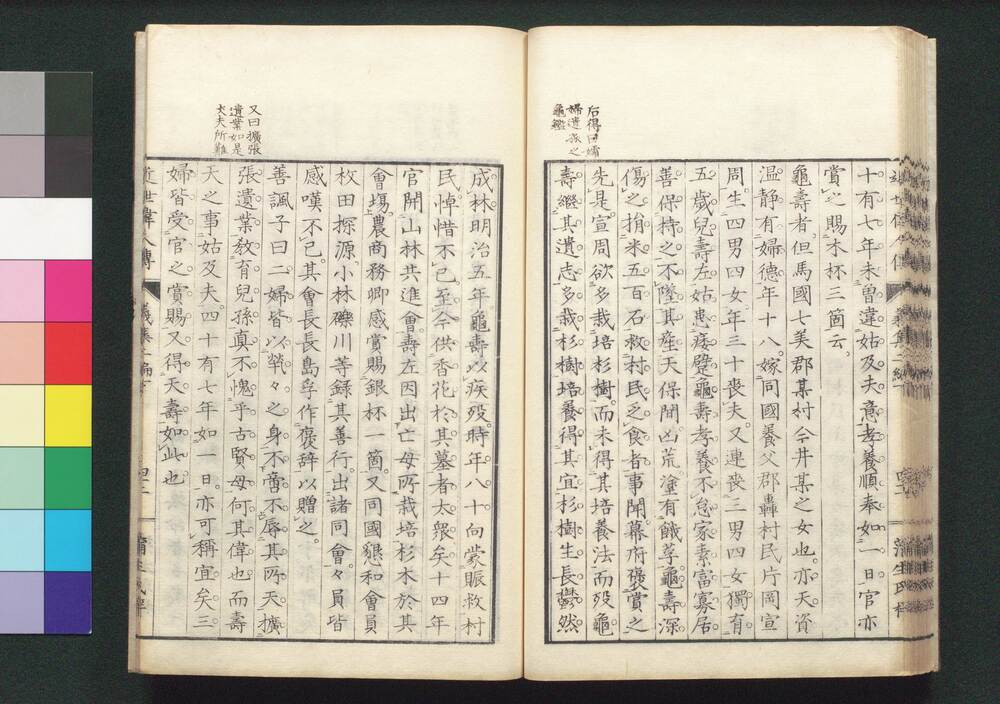 后得曰孀
婦遺孤之
龜鑑
十有七年未曽違姑及夫意孝養順奉如一日官亦
賞之賜木杯三箇云
龜壽者但馬國七美郡某村今井某之女也亦天資
温静有婦德年十八嫁同國養父郡轟村民片岡宣
周生四男四女年三十喪夫又連喪三男四女獨有
五歳兒壽左姑患痿躄龜壽孝養不怠家素富寡居
善保持之不墜其産天保開凶荒塗有餓莩龜壽深
傷之捐米五百石救村民乏食者事聞幕府襃賞之
先是宣周欲多栽培杉樹而未得其培養法而歿龜
壽繼其遺志多栽杉樹培養得其宜杉樹生長鬱然
成林明治五年龜壽以疾歿時年八十向蒙賑救村
民悼惜不已至今供香花於其墓者太衆矣十四年
官開山林共進會壽左因出亡母所栽培杉木於其
會塲農商務卿感賞賜銀杯一箇又同國懇和會員
枚田探源小林礫川等録其善行出諸同會々員皆
感嘆不已其會長長島孚作褒辞以贈之
善諷子曰二婦皆以煢々之身不啻不辱其所天擴
張遺業敎育兒孫真不愧乎古賢母何其偉也而壽
天之事姑及夫四十有七年如一日亦可稱宜矣三
婦皆受官之賞賜又得天壽如此也
又曰擴張
遺業如是
丈夫所難
近世偉人傳
蒲生氏梓